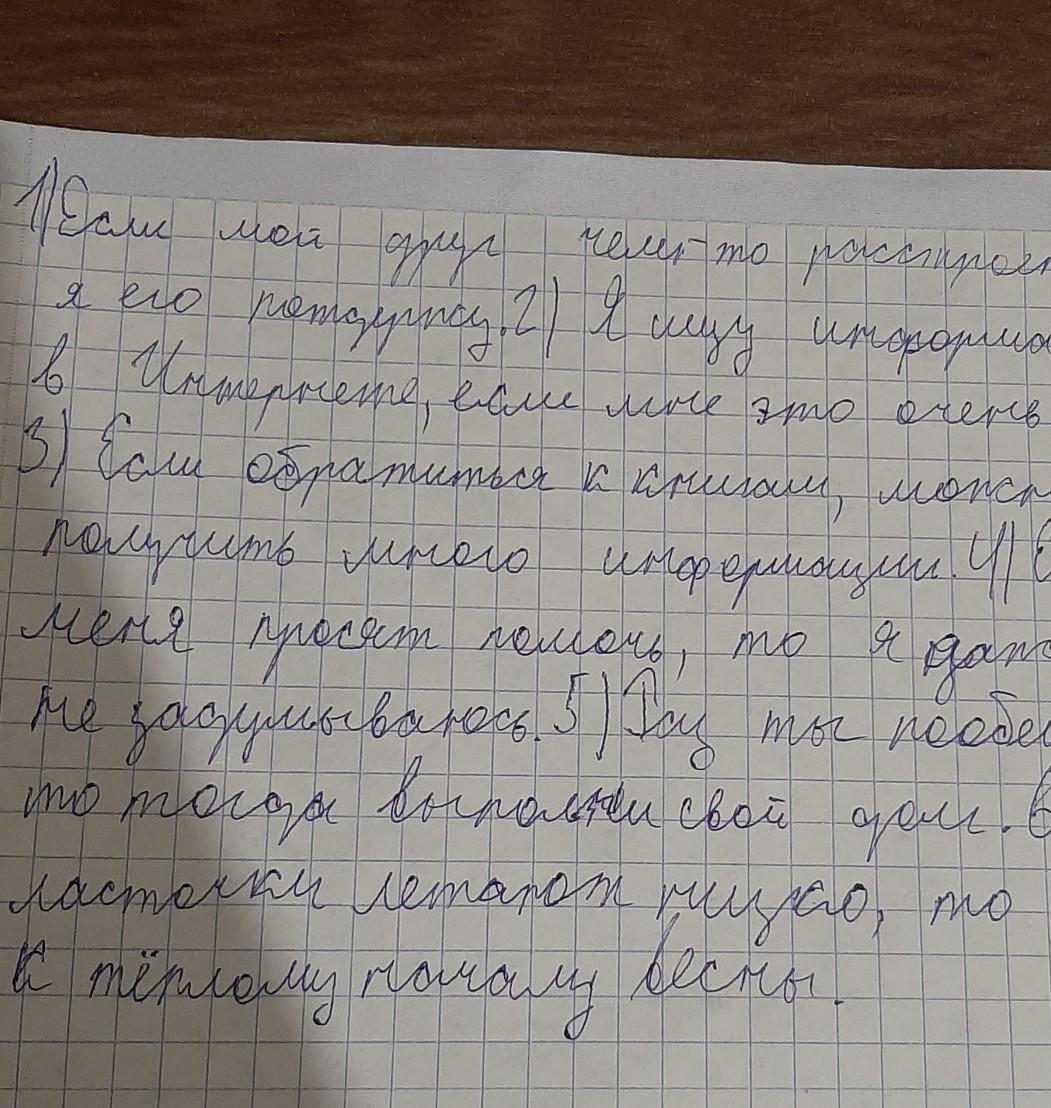 1) Если мой друг чем-то расстрое
я его потдержу. 2) Я ищу информа
в Интернете, если мне это очень
3) Если обратиться к книгам, можн
получить много информации. 4) Е
меня просят помочь, то я даж
не задумываюсь. 5) Раз ты пообе
то тогда выполни свой долг. 6
ласточки летают низко, то
к тёплому началу весны.